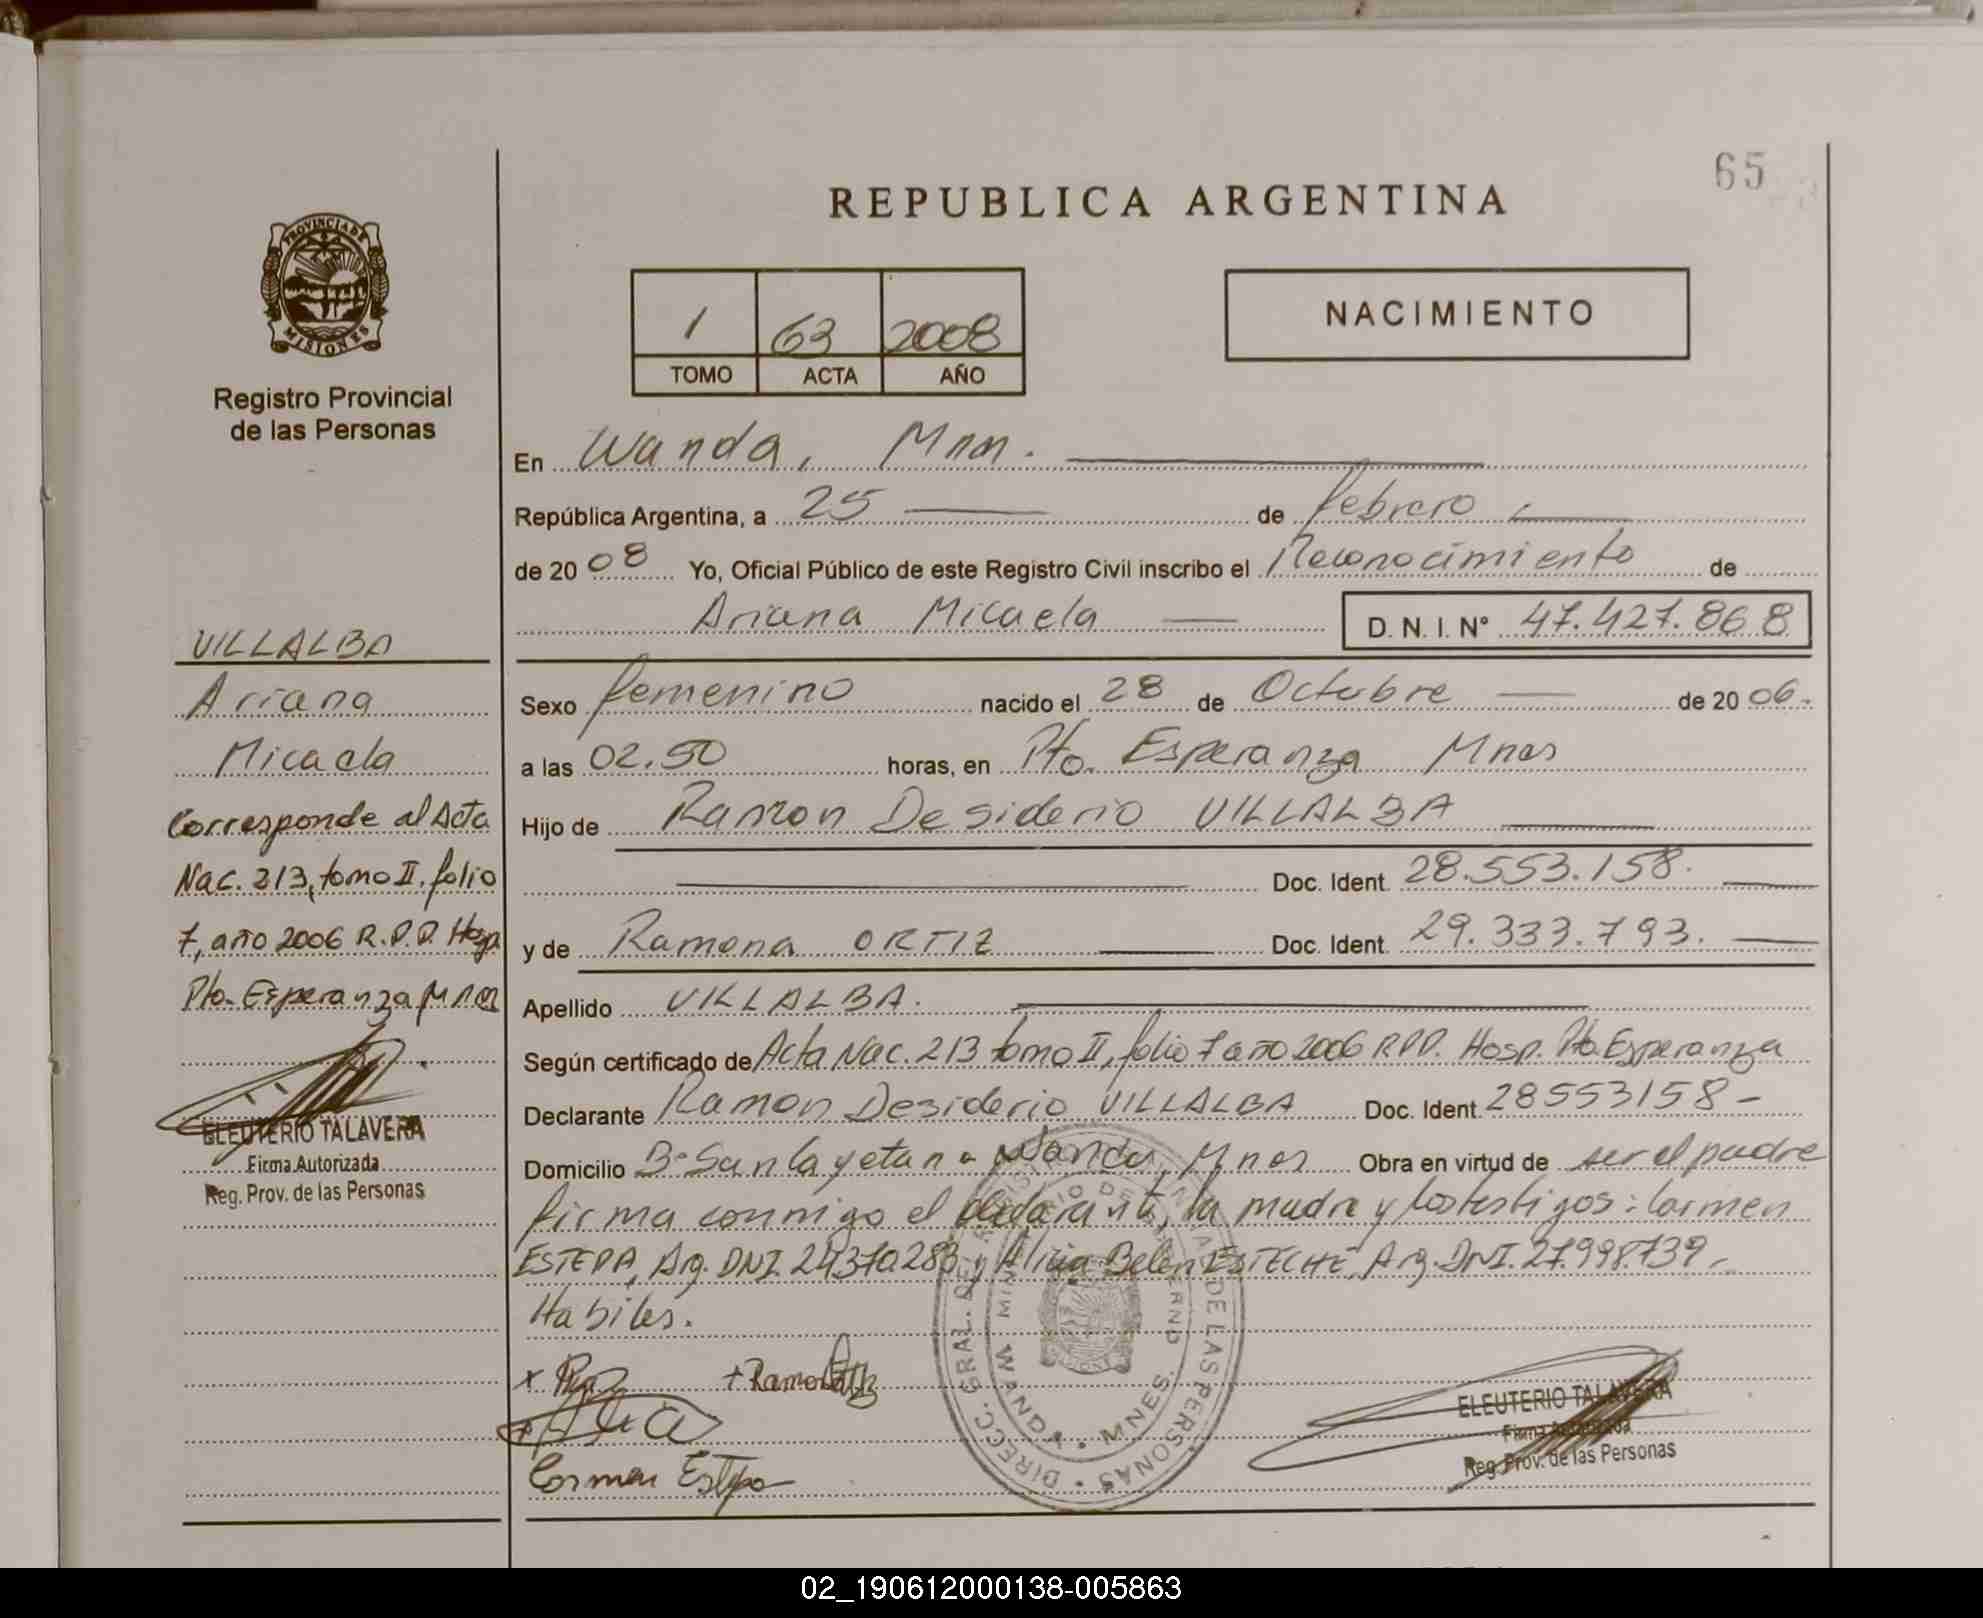 65
REPUBLICA ARGENTINA
PROVINCIA DE
MISIONES
Registro Provincial
de las Personas
1 63 2008
TOMO ACTA AÑO
NACIMIENTO
En Wanda, Mnes.
República Argentina, a 25 de febrero
de 2008 Yo, Oficial Público de este Registro Civil inscribo el Reconocimiento de
Ariana Micaela D. N. I. Nº 47.427.868
Sexo femenino nacido el 28 de Octubre de 2006.
a las 02.50 horas, en Pto. Esperanza Mnes
Hijo de Ramon Desiderio VILLALBA
Doc. Ident. 28.553.158.
y de Ramona ORTIZ Doc. Ident. 29.333.793.
Apellido VILLALBA.
Según certificado de Acta Nac. 213 tomo II, folio 7 año 2006 R.P.P. Hosp. Pto. Esperanza
Declarante Ramon Desiderio VILLALBA Doc. Ident. 28553158-
Domicilio Bº San Cayetano Wanda, Mnes Obra en virtud de ser el padre
firma conmigo el declarante, la madre y los testigos: Carmen
ESTEPA, Arg. DNI. 24370283 y Alicia Belen ESTECHE, Arg. DNI. 27.998.739-
Habiles.
Carmen Estepa
ELEUTERIO TALAVERA
Firma Autorizada
Reg. Prov. de las Personas
VILLALBA
Ariana
Micaela
Corresponde al Acta
Nac. 213, tomo II, folio
7, año 2006 R.P.P. Hosp
Pto. Esperanza Mnes
ELEUTERIO TALAVERA
Firma Autorizada
Reg. Prov. de las Personas
WANDA • MNES.
02_190612000138-005863